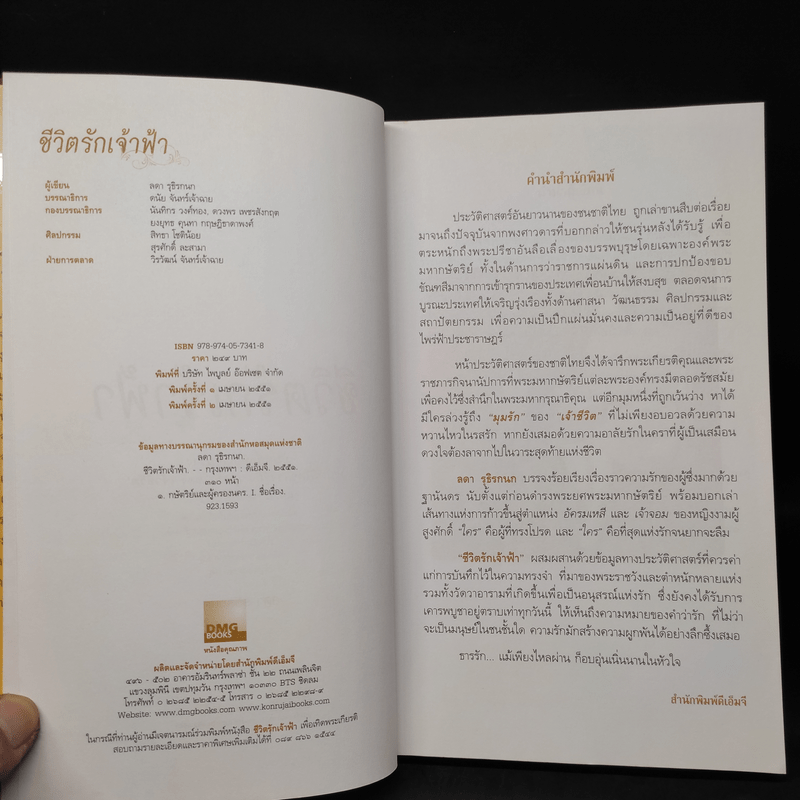 ชีวิตรักเจ้าฟ้า
ผู้เขียน ลดา รุธิรกนก
บรรณาธิการ ดนัย จันทร์เจ้าฉาย
กองบรรณาธิการ นันทิกร วงศ์ทอง, ดวงพร เพชรสังกฤต
ยงยุทธ คุนทา กฤษฎิธาดาพงศ์
ศิลปกรรม สิทธา โชติน้อย
สุรศักดิ์ ละสามา
ฝ่ายการตลาด วิรวัฒน์ จันทร์เจ้าฉาย
ISBN 978-974-05-7341-8
ราคา ๒๔๙ บาท
พิมพ์ที่ บริษัท ไพบูลย์ อ๊อฟเซต จำกัด
พิมพ์ครั้งที่ ๑ เมษายน ๒๕๕๑
พิมพ์ครั้งที่ ๒ เมษายน ๒๕๕๑
ข้อมูลทางบรรณานุกรมของสำนักหอสมุดแห่งชาติ
ลดา รุธิรกนก.
ชีวิตรักเจ้าฟ้า. - - กรุงเทพฯ : ดีเอ็มจี. ๒๕๕๑.
๓๑๐ หน้า
๑. กษัตริย์และผู้ครองนคร. I. ชื่อเรื่อง.
923.1593
DMG
BOOKS
หนังสือคุณภาพ
ผลิตและจัดจำหน่ายโดยสำนักพิมพ์ดีเอ็มจี
๔๙๖ - ๕๐๒ อาคารอัมรินทร์พลาซ่า ชั้น ๒๒ ถนนเพลินจิต
แขวงลุมพินี เขตปทุมวัน กรุงเทพฯ ๑๐๓๓๐ BTS ชิดลม
โทรศัพท์ ๐ ๒๖๘๕ ๒๒๕๔-๕ โทรสาร ๐ ๒๖๘๕ ๒๒๙๘-๙
Website: www.dmgbooks.com www.konrujaibooks.com
ในกรณีที่ท่านผู้อ่านมีเจตนารมณ์ร่วมพิมพ์หนังสือ ชีวิตรักเจ้าฟ้า เพื่อเทิดพระเกียรติ
สอบถามรายละเอียดและราคาพิเศษเพิ่มเติมได้ที่ ๐๘๙ ๘๖๖ ๑๕๔๔
คำนำสำนักพิมพ์
ประวัติศาสตร์อันยาวนานของชนชาติไทย ถูกเล่าขานสืบต่อเรื่อย
มาจนถึงปัจจุบันจากพงศาวดารที่บอกกล่าวให้ชนรุ่นหลังได้รับรู้ เพื่อ
ตระหนักถึงพระปรีชาอันลือเลื่องของบรรพบุรุษโดยเฉพาะองค์พระ
มหากษัตริย์ ทั้งในด้านการว่าราชการแผ่นดิน และการปกป้องขอบ
ขัณฑสีมาจากการเข้ารุกรานของประเทศเพื่อนบ้านให้สงบสุข ตลอดจนการ
บูรณะประเทศให้เจริญรุ่งเรืองทั้งด้านศาสนา วัฒนธรรม ศิลปกรรมและ
สถาปัตยกรรม เพื่อความเป็นปึกแผ่นมั่นคงและความเป็นอยู่ที่ดีของ
ไพร่ฟ้าประชาราษฎร์
หน้าประวัติศาสตร์ของชาติไทยจึงได้จารึกพระเกียรติคุณและพระ
ราชภารกิจนานัปการที่พระมหากษัตริย์แต่ละพระองค์ทรงมีตลอดรัชสมัย
เพื่อคงไว้ซึ่งสำนึกในพระมหากรุณาธิคุณ แต่อีกมุมหนึ่งที่ถูกเว้นว่าง หาได้
มีใครล่วงรู้ถึง “มุมรัก” ของ “เจ้าชีวิต” ที่ไม่เพียงอบอวลด้วยความ
หวานไหวในรสรัก หากยังเสมอด้วยความอาลัยรักในคราที่ผู้เป็นเสมือน
ดวงใจต้องลาจากไปในวาระสุดท้ายแห่งชีวิต
ลดา รุธิรกนก บรรจงร้อยเรียงเรื่องราวความรักของผู้ซึ่งมากด้วย
ฐานันดร นับตั้งแต่ก่อนดำรงพระยศพระมหากษัตริย์ พร้อมบอกเล่า
เส้นทางแห่งการก้าวขึ้นสู่ตำแหน่ง อัครมเหสี และ เจ้าจอม ของหญิงงามผู้
สูงศักดิ์ “ใคร” คือผู้ที่ทรงโปรด และ “ใคร” คือที่สุดแห่งรักจนยากจะลืม
“ชีวิตรักเจ้าฟ้า” ผสมผสานด้วยข้อมูลทางประวัติศาสตร์ที่ควรค่า
แก่การบันทึกไว้ในความทรงจำ ที่มาของพระราชวังและตำหนักหลายแห่ง
รวมทั้งวัดวาอารามที่เกิดขึ้นเพื่อเป็นอนุสรณ์แห่งรัก ซึ่งยังคงได้รับการ
เคารพบูชาอยู่ตราบเท่าทุกวันนี้ ให้เห็นถึงความหมายของคำว่ารัก ที่ไม่ว่า
จะเป็นมนุษย์ในชนชั้นใด ความรักมักสร้างความผูกพันได้อย่างลึกซึ้งเสมอ
ธารรัก... แม้เพียงไหลผ่าน ก็อบอุ่นเนิ่นนานในหัวใจ
สำนักพิมพ์ดีเอ็มจี